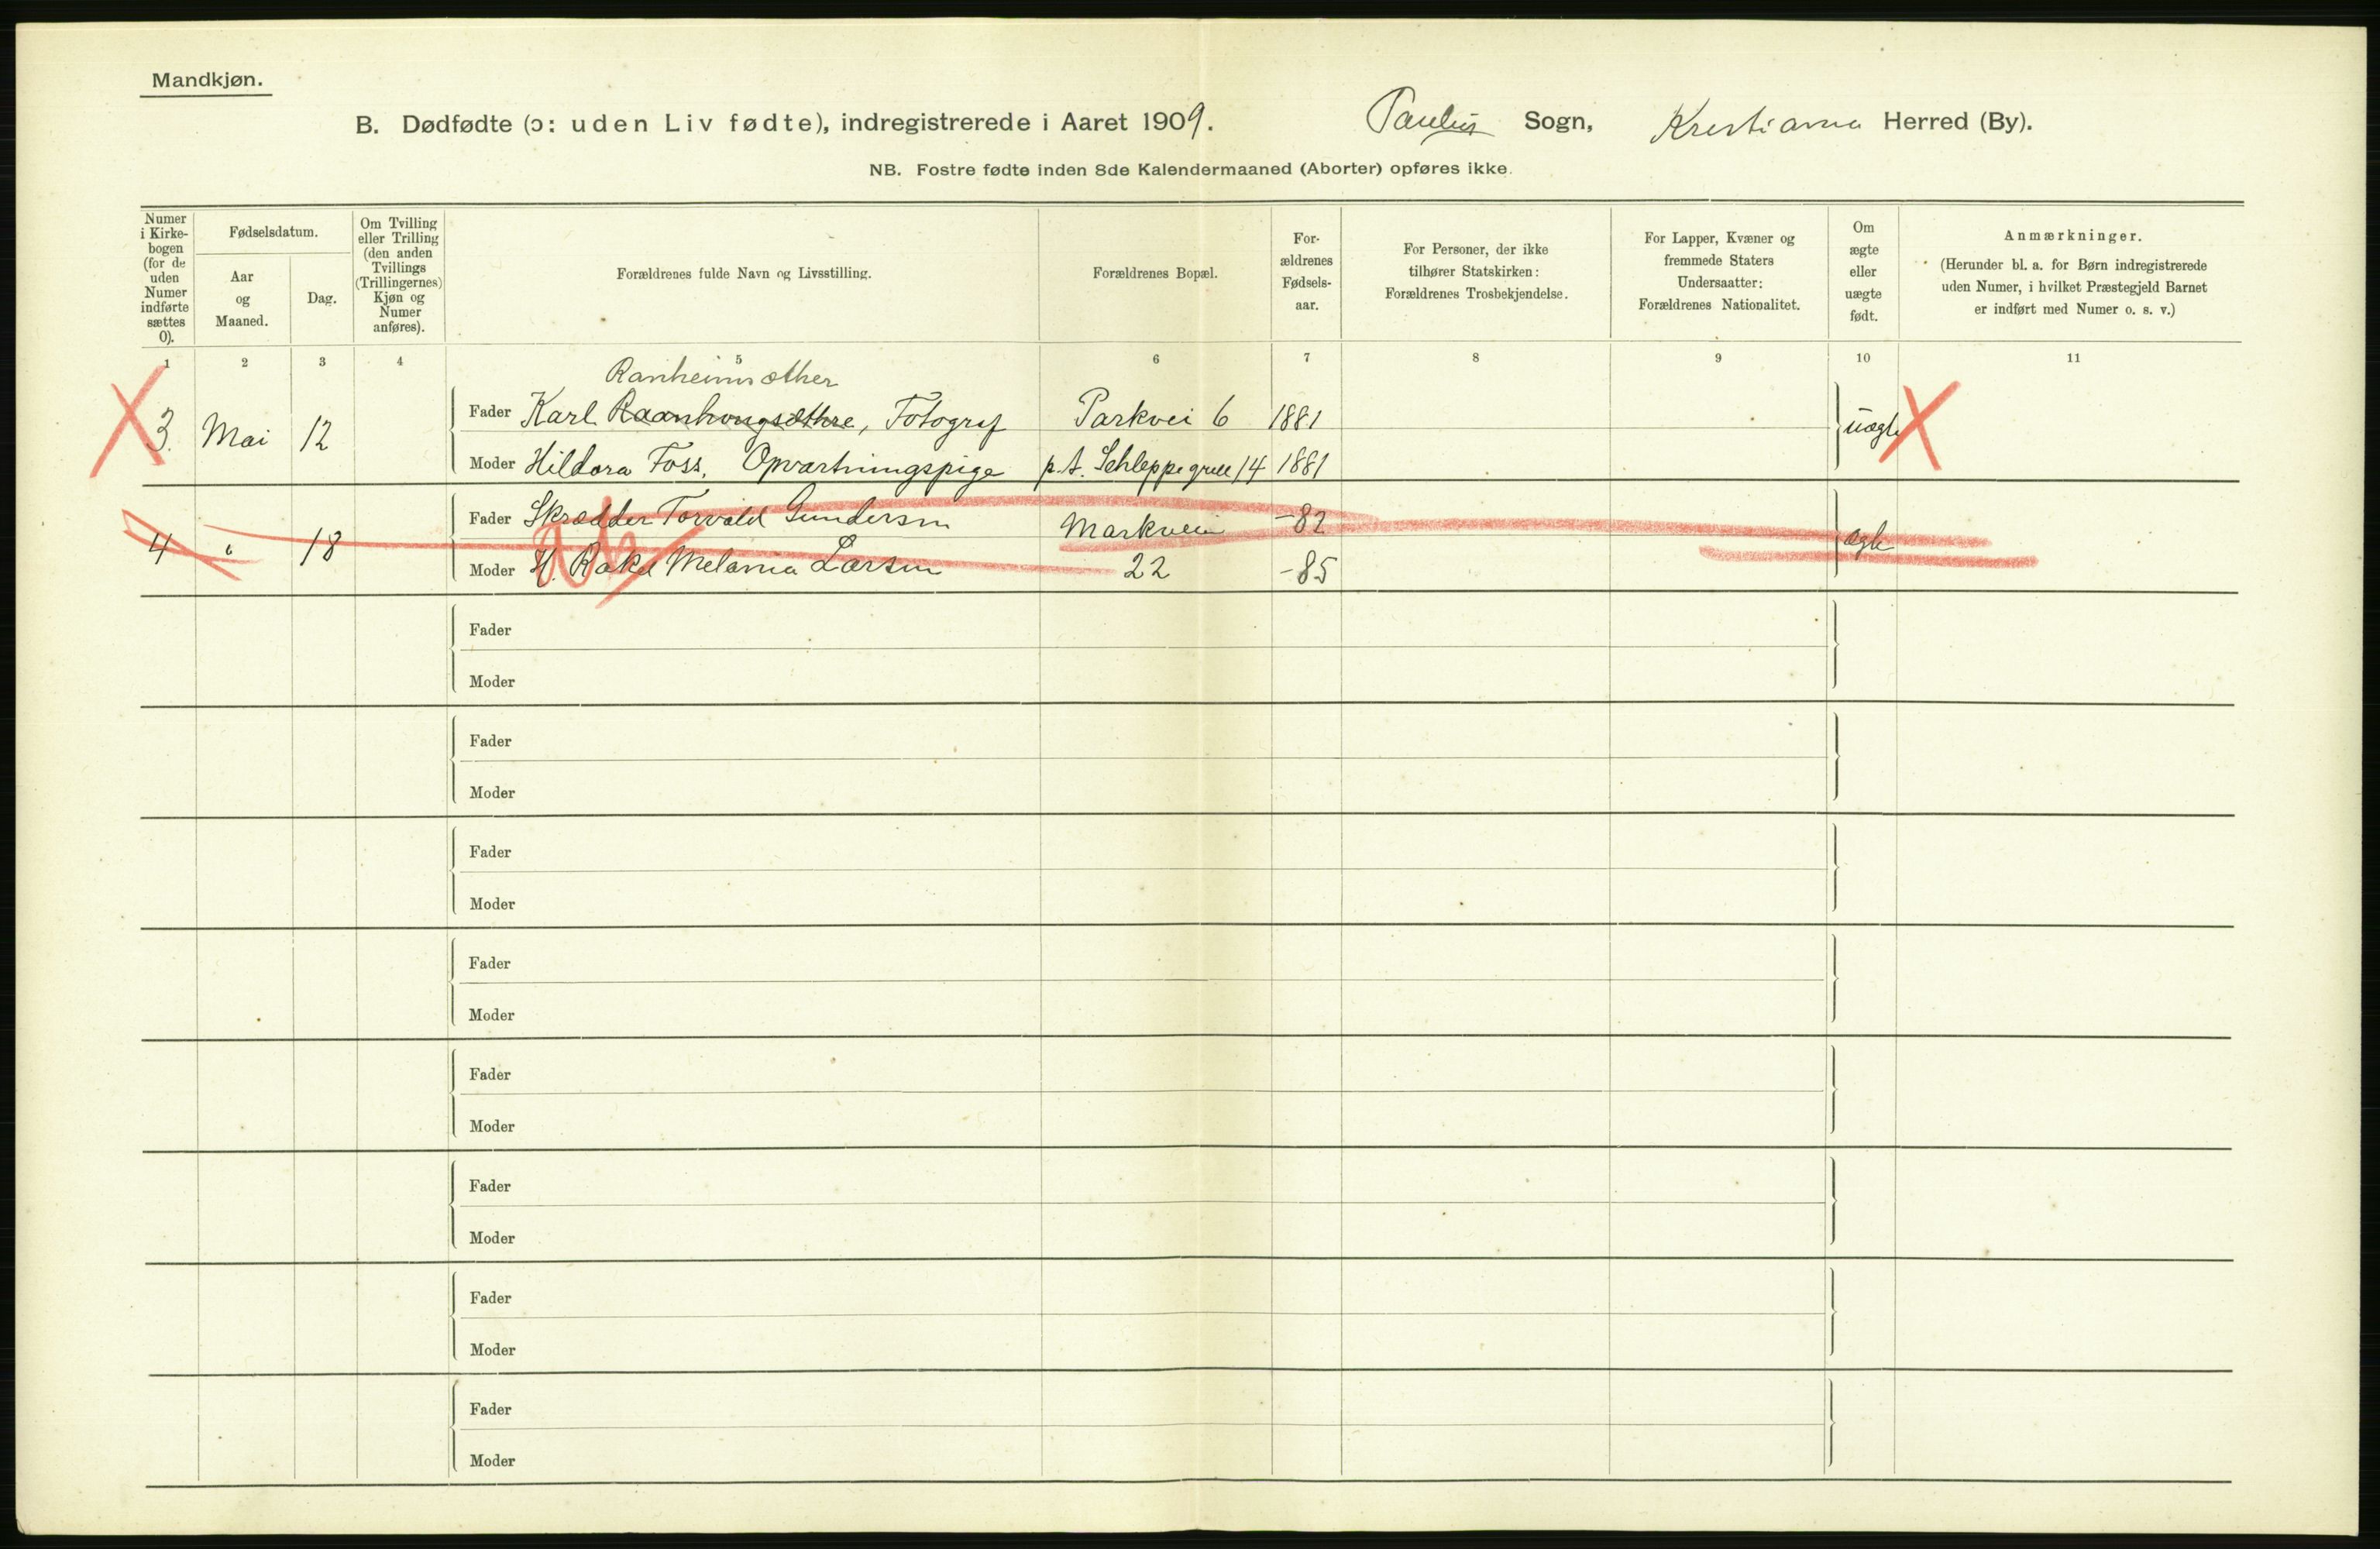 Mandkjøn.
B. Dødfødte (ɔ: uden Liv fødte), indregistrerede i Aaret 1909. Paulus Sogn, Kristiania Herred (By).
NB. Fostre fødte inden 8de Kalendermaaned (Aborter) opføres ikke.
Numer i Kirkebogen (for de uden Numer indførte sættes 0).
Fødselsdatum.
Aar og Maaned.
Dag.
Om Tvilling eller Trilling (den anden Tvillings (Trillingernes) Kjøn og Numer anføres).
Forældrenes fulde Navn og Livsstilling.
Forældrenes Bopæl.
Forældrenes Fødselsaar.
For Personer, der ikke tilhører Statskirken: Forældrenes Trosbekjendelse.
For Lapper, Kvæner og fremmede Staters Undersaatter: Forældrenes Nationalitet.
Om ægte eller uægte født.
Anmærkninger.
(Herunder bl. a. for Børn indregistrerede uden Numer, i hvilket Præstegjeld Barnet er indført med Numer o. s. v.)
1 2 3 4 5 6 7 8 9 10 11
Ranheimsæther
3. Mai 12 Fader Karl Raanhougsæthre, Fotograf Parkvei 6 1881 uægte
Moder Hildora Foss, Opvartningspige p.t. Schleppegrell 14 1881
4 " 18 Fader Skrædder Torvald Gundersen Markveien -82 ægte
Moder H. Rakel Melania Larsen 22 -85
Fader
Moder
Fader
Moder
Fader
Moder
Fader
Moder
Fader
Moder
Fader
Moder
Fader
Moder
Fader
Moder